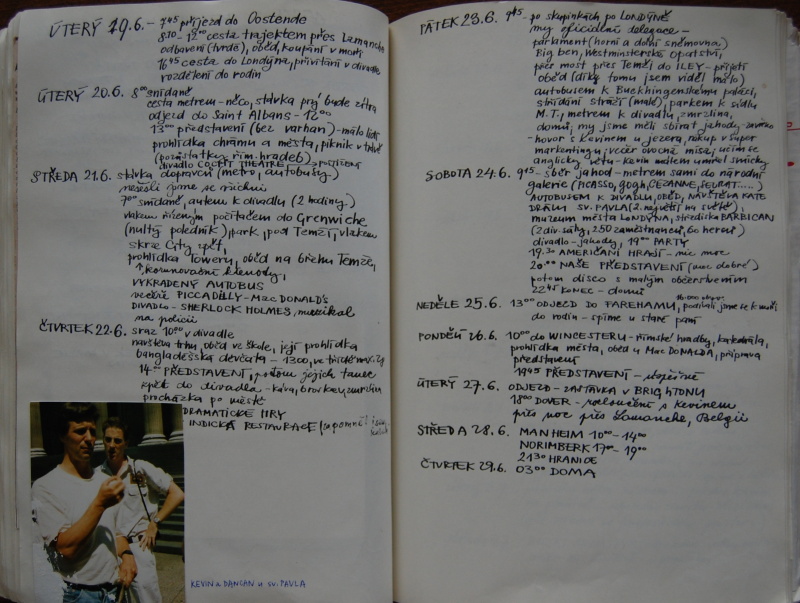 ÚTERÝ 19.6. – 7⁴⁵ příjezd do Oostende
8¹⁰ – 12⁰⁰ cesta trajektem přes Lamanche
odbavení (tvrdé), oběd, koupání v moři
16⁴⁵ cesta do Londýna, přivítání v divadle
rozdělení do rodin
ÚTERÝ 20.6. 8⁰⁰ snídaně
cesta metrem – něco, stávka prý bude zítra
odjezd do Saint Albans – 12⁰⁰
13⁰⁰ představení (bez varhan) – málo lidí
prohlídka chrámu a města, piknik v trávě
(pozůstatky řím. hradeb)
divadlo COCPIT THEATRE
STŘEDA 21.6. stávka dopravců (metro, autobusy)
nesešli jsme se všichni
7⁰⁰ snídaně, autem k divadlu (2 hodiny)
vlakem řízeným počítačem do Grenwiche
(nultý poledník), park, pod Temží, vlakem
skrze City zpět,
prohlídka Toweru, oběd na břehu Temže,
korunovační klenoty,
VYKRADENÝ AUTOBUS
večeře PICCADILLY – MAC DONALD'S
DIVADLO – SHERLOCK HOLMES, muzikál
na policii
ČTVRTEK 22.6. sraz 10⁰⁰ v divadle
návštěva trhu, oběd ve škole, její prohlídka
bangladéšská děvčata – 1300, ve třídě max.
14⁰⁰ PŘEDSTAVENÍ, potom jejich tanec
zpět do divadla – káva, zmrzlina
procházka po městě
DRAMATICKÉ HRY
INDICKÁ RESTAURACE
KEVIN a DANCAN u SV. PAVLA
PÁTEK 23.6. 9⁴⁵ – po skupinkách po LONDÝNĚ
my oficiální delegace –
parlament (horní a dolní sněmovna)
Big ben, Westminsterské opatství,
přes most přes Temži do ILEY – přijetí
oběd (díky tomu jsem viděl málo)
autobusem k Buckhingenskému paláci,
střídání stráží (malé), parkem k sídlu
M.T., metrem k divadlu, zmrzlina,
domů, my jsme měli sbírat jahody –
hovor s Kevinem u jezera, nákup v super
marketingu, večer ovocná mísa, učím se
anglicky větu – Kevin málem umřel smíchy
SOBOTA 24.6. 9⁴⁵ – sběr jahod – metrem sami do národní
galerie (PICASSO, gogh, CÉZANNE, SEURAT.....)
AUTOBUSEM K DIVADLU, OBĚD, NÁVŠTĚVA KATE
DRÁLY SV. PAVLA (2. největší na světě),
muzeum města LONDÝNA, střediska BARBICAN
(2 div. sály, 250 zaměstnanců, 60 herců)
divadlo – jahody, 19⁰⁰ PARTY
19.30 AMERIČANI HRAJÍ – nic moc
20.00 NAŠE PŘEDSTAVENÍ (moc dobré)
potom disco s malým občerstvením
22⁴⁵ KONEC – domů
NEDĚLE 25.6. 13⁰⁰ ODJEZD DO FAREHAMU, podívali jsme se k moři
do rodin – spíme u staré paní
PONDĚLÍ 26.6. 10⁰⁰ do WINCESTERU – římské hradby, katedrála,
prohlídka města, oběd u Mac DONALDA, příprava
představení
19⁴⁵ PŘEDSTAVENÍ –
ÚTERÝ 27.6. ODJEZD – ZASTÁVKA V BRIGHTONU
18⁰⁰ DOVER – rozloučení s Kevinem
přes noc přes Lamanche, Belgii
STŘEDA 28.6. MANHEIM 10⁰⁰ – 14⁰⁰
NORIMBERK 17⁰⁰ – 19⁰⁰
21³⁰ HRANICE
ČTVRTEK 29.6. 03⁰⁰ DOMA